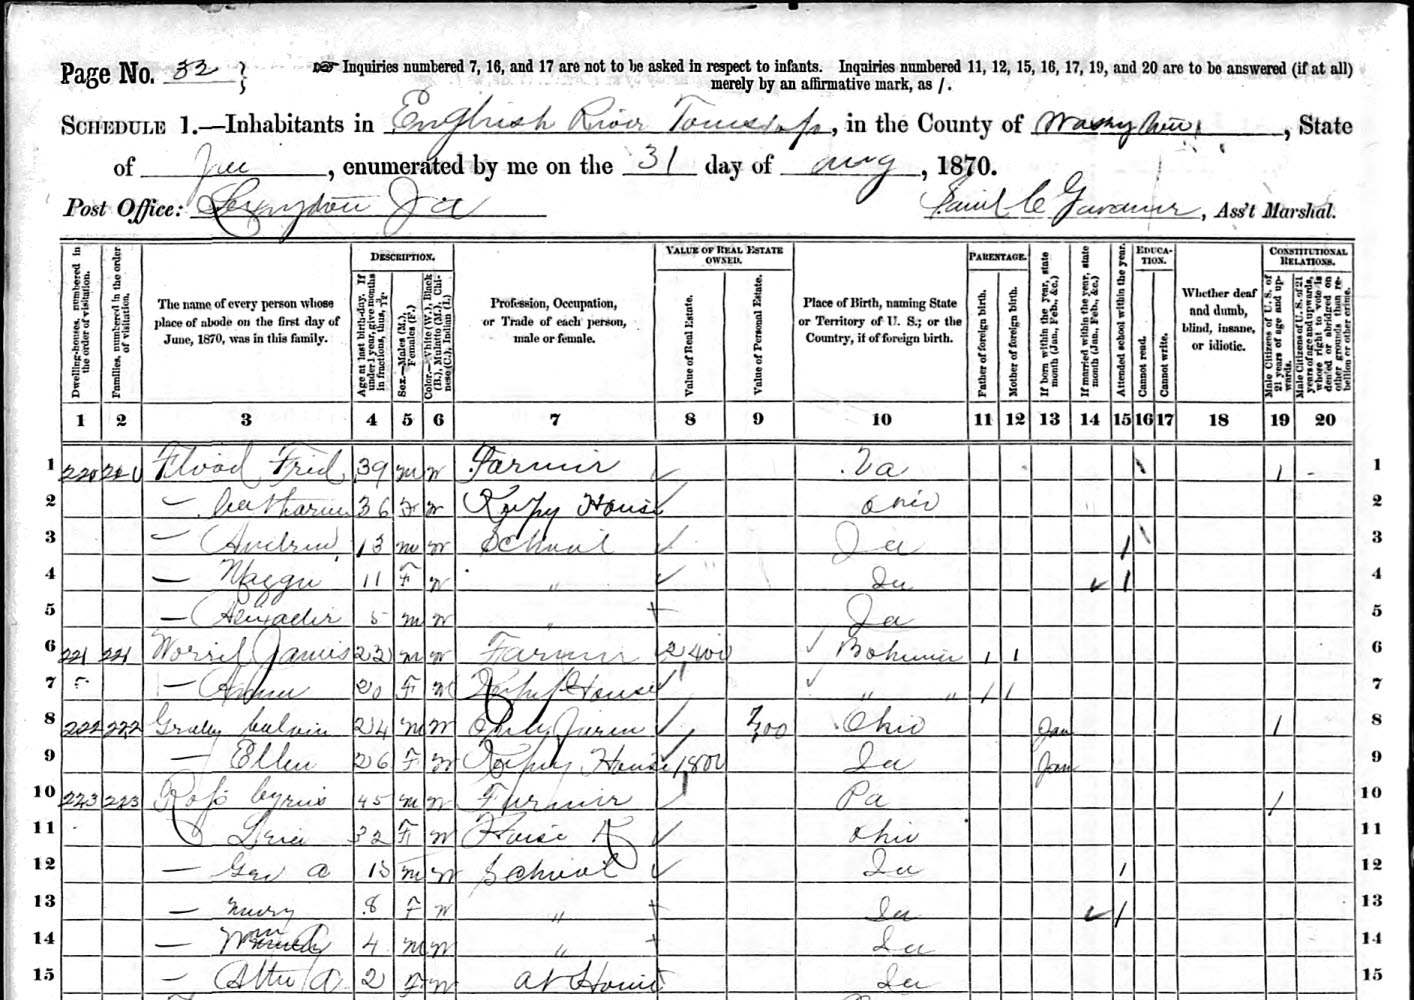 Page No. 32
☞ Inquiries numbered 7, 16, and 17 are not to be asked in respect to infants. Inquiries numbered 11, 12, 15, 16, 17, 19, and 20 are to be answered (if at all)
merely by an affirmative mark, as /.
SCHEDULE 1.—Inhabitants in English River Township, in the County of Washington, State
of Iow, enumerated by me on the 31 day of Aug, 1870.
Post Office: Ia
Saml C Gardner, Ass't Marshal.
Dwelling-houses, numbered in the order of visitation.
Families, numbered in the order of visitation.
The name of every person whose place of abode on the first day of June, 1870, was in this family.
DESCRIPTION.
Age at last birth-day. If under 1 year, give months in fractions, thus, 3/12.
Sex.—Males (M.), Females (F.)
Color.—White (W.), Black (B.), Mulatto (M.), Chinese (C.), Indian (I.)
Profession, Occupation, or Trade of each person, male or female.
VALUE OF REAL ESTATE OWNED.
Value of Real Estate.
Value of Personal Estate.
Place of Birth, naming State or Territory of U. S.; or the Country, if of foreign birth.
PARENTAGE.
Father of foreign birth.
Mother of foreign birth.
If born within the year, state month (Jan. Feb., &c.)
If married within the year, state month (Jan. Feb., &c.)
Attended school within the year.
EDUCATION.
Cannot read.
Cannot write.
Whether deaf and dumb, blind, insane, or idiotic.
CONSTITUTIONAL RELATIONS.
Male Citizens of U. S. of 21 years of age and upwards.
Male Citizens of U. S. of 21 years of age and upwards, whose right to vote is denied or abridged on other grounds than rebellion or other crime.
1 2 3 4 5 6 7 8 9 10 11 12 13 14 15 16 17 18 19 20
1 220 220 Flood Fred 39 m w Farmer Va 1 1
2 — Catharine 36 F w Keepg House Ohio 2
3 — Andrew 13 m w School Ia / 3
4 — Maggie 11 F w " Ia / 4
5 — Alexader 5 m w " Ia 5
6 221 221 Worrel James 23 m w Farmer 2400 Bohemia 1 1 6
7 — Anna 20 F w Keepg House " " 1 1 7
8 222 222 Calvin 24 m w 700 Ohio Jan 1 8
9 — Ellen 26 F w Keepg House 1800 Ia Jan 9
10 223 223 Ross Cyrus 45 m w Farmer Pa 1 10
11 32 F w House K Ohio 11
12 — Geo A 13 m w School Ia / 12
13 — Mary 8 F w " Ia / 13
14 — 4 m w " Ia 14
15 — A 2 F w at Home Ia 15